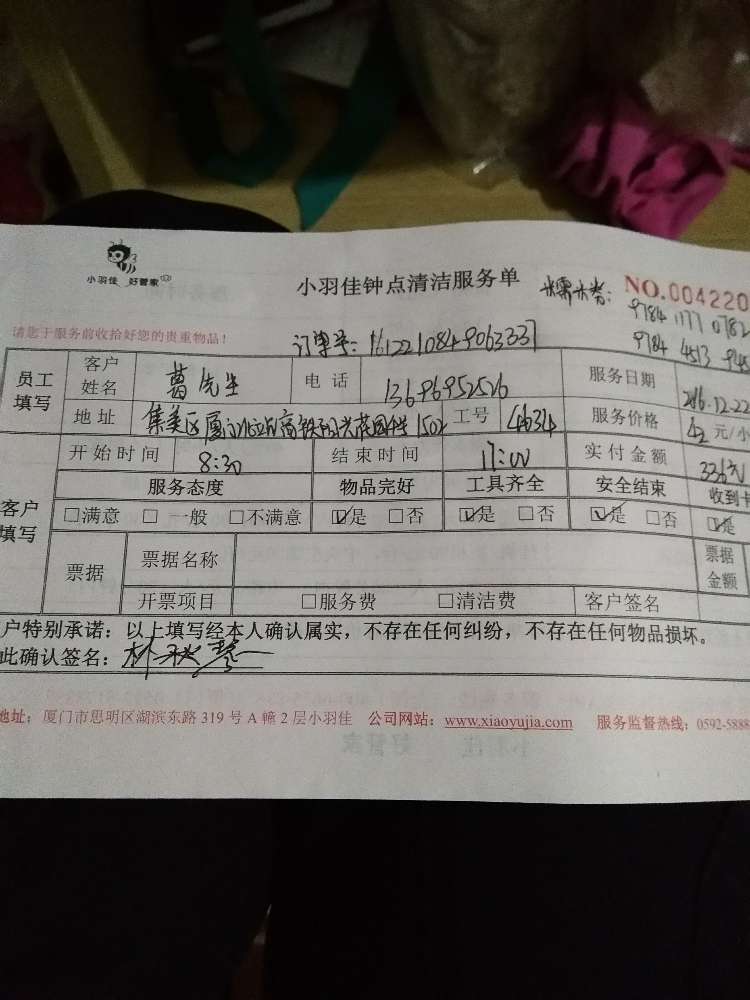 小羽佳 好管家
小羽佳钟点清洁服务单
NO.004220
9784 1177 0782
订单号: 1612210849063337
9784 4513
请您于服务前收拾好您的贵重物品!
员工填写 客户姓名 葛先生 电话 13696952526 服务日期 2016.12.22
地址 集美区厦门北站 1502 工号 4634 服务价格 42 元/小
开始时间 8:30 结束时间 17:00 实付金额 336元
客户填写 服务态度 物品完好 工具齐全 安全结束 收到卡
□满意 □一般 □不满意 ☑是 □否 ☑是 □否 ☑是 □否 ☑是
票据 票据名称 票据金额
开票项目 □服务费 □清洁费 客户签名
户特别承诺：以上填写经本人确认属实，不存在任何纠纷，不存在任何物品损坏。
此确认签名： 林秋慧
地址：厦门市思明区湖滨东路 319 号 A 幢 2 层小羽佳 公司网站：www.xiaoyujia.com 服务监督热线：0592-5888